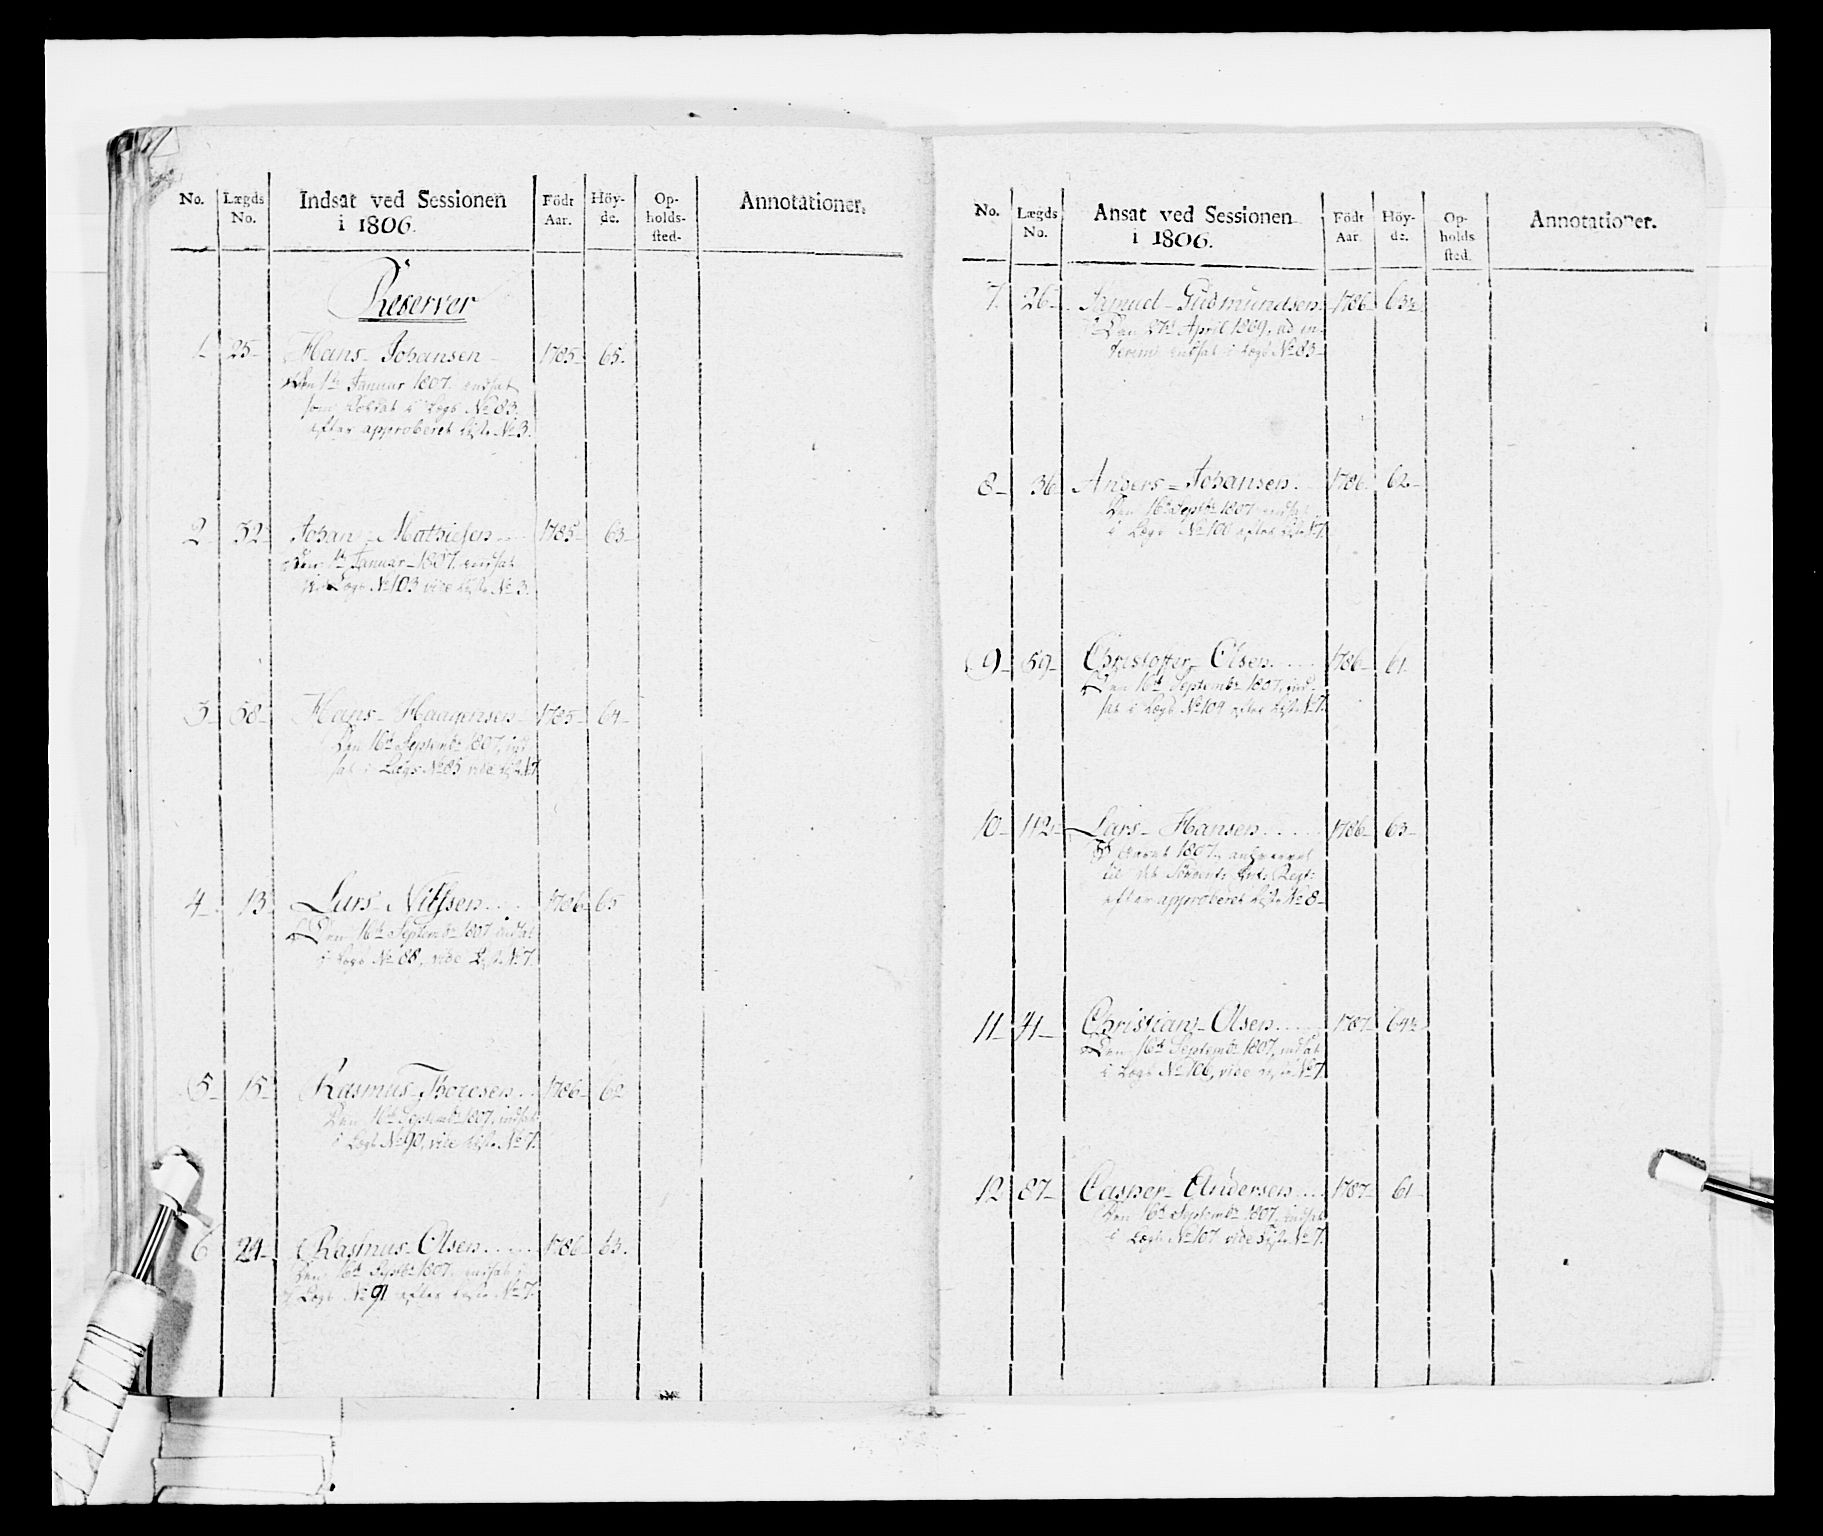 No. Lægds No. Indsat ved Sessionen i 1806. Födt Aar. Höy-de. Op-holds-sted. Annotationer.
Reserver
1. 25 Hans Johansen 1785 65.
Den 1te Januar 1807. indsat
som Soldat i Lægd No 83.
efter approberet Liste No 3.
2 32 Johan Mathiesen 1785 63
Den 1te Januar 1807. indsat
i Lægd No 103 vide Liste No 3.
3 58 Hans Haagensen 1785 64
Den 16de Septembr 1807, ind
sat i Lægd No 85 vide Liste No 7.
4 13 Lars Nilssen 1786 65
Den 16de Septembr 1807 indsat
i Lægd No 88, vide List No 7.
5 15 Rasmus Thoresen 1786 62
Den 16de Septembr 1807, indsat
i Lægd No 90, vide Liste No 7.
6 24 Rasmus Olsen 1786 63.
Den 16de Septbr 1807. indsat i
Lægd No 91 efter Liste No 7.
No. Lægds No. Ansat ved Sessionen i 1806. Födt Aar. Höy-de. Op-holds sted. Annotationer.
7. 26 Samuel Gudmundsen 1786 63½
Den April 1809, ad in-
terim indsat i Lægd No 83
8 36 Anders Johansen 1786. 62
Den 16de Septbr 1807 indsat
i Lægd No 100 efter Liste No 7.
9 59 Christoffer Olsen 1786 61.
Den 16de Septembr 1807, ind-
sat i Lægd No 104 efter Liste No 7.
10 112 Lars Hansen 1786 63
1807.
til det Regt:
efter approberet Liste No 8
11 41 Christian Olsen 1787 64½
Den 16de Septembr 1807, indsat
i Lægd No 106, vide Liste No 7.
12 87 Casper Andersen 1787 61
Den 16de Septembr 1807. indsat
i Lægd No 107 vide Liste No 7.